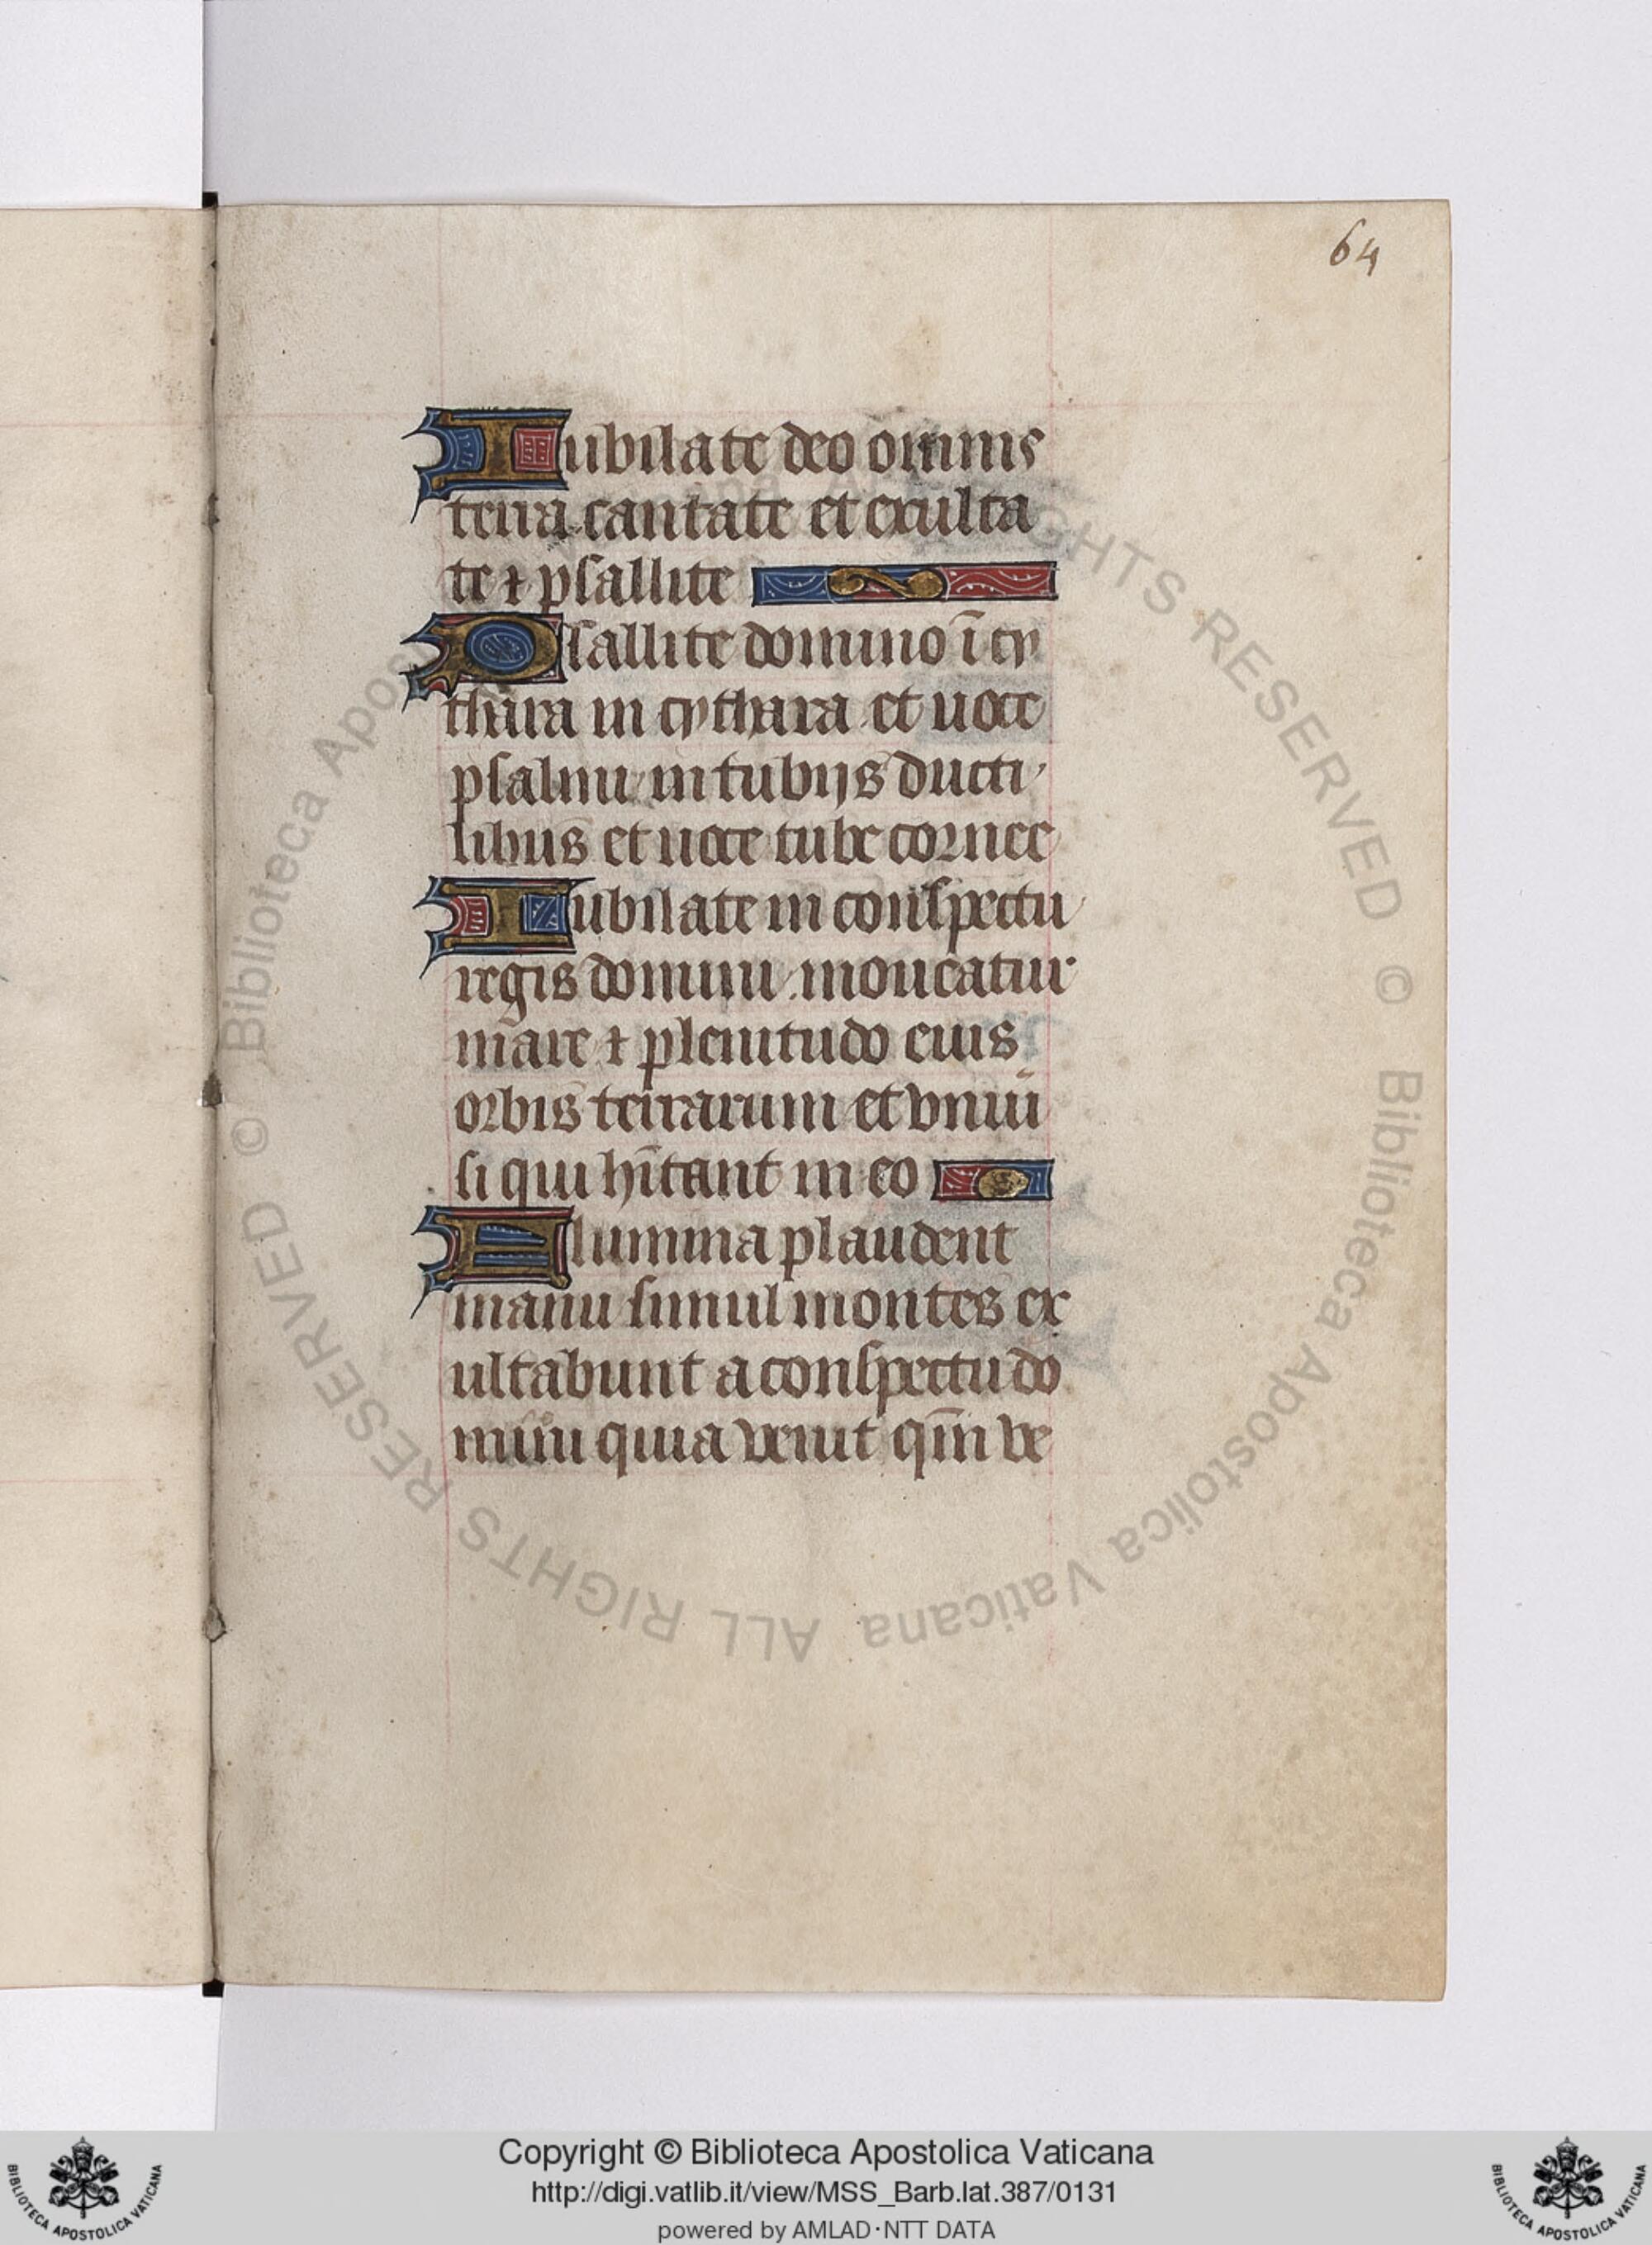 64
Iubilate deo omnis
terra cantate et exulta
te ⁊ psallite
Psallite domino ī cy
thara in cythara et uoce
psalmi in tubijs ducti
libus et uoce tube cornee
Iubilate in conspectu
regis domini moueatur
mare ⁊ plenitudo eius
orbis terrarum et vniu
si qui hītant in eo
Flumina plaudent
manu simul montes ex
ultabunt a conspectu do
mini quia venit qm̄ ve
© Biblioteca Apostolica Vaticana ALL RIGHTS RESERVED
© Biblioteca Apostolica Vaticana ALL RIGHTS RESERVED
Copyright © Biblioteca Apostolica Vaticana
http://digi.vatlib.it/view/MSS_Barb.lat.387/0131
powered by AMLAD·NTT DATA
BIBLIOTECA APOSTOLICA VATICANA
BIBLIOTECA APOSTOLICA VATICANA